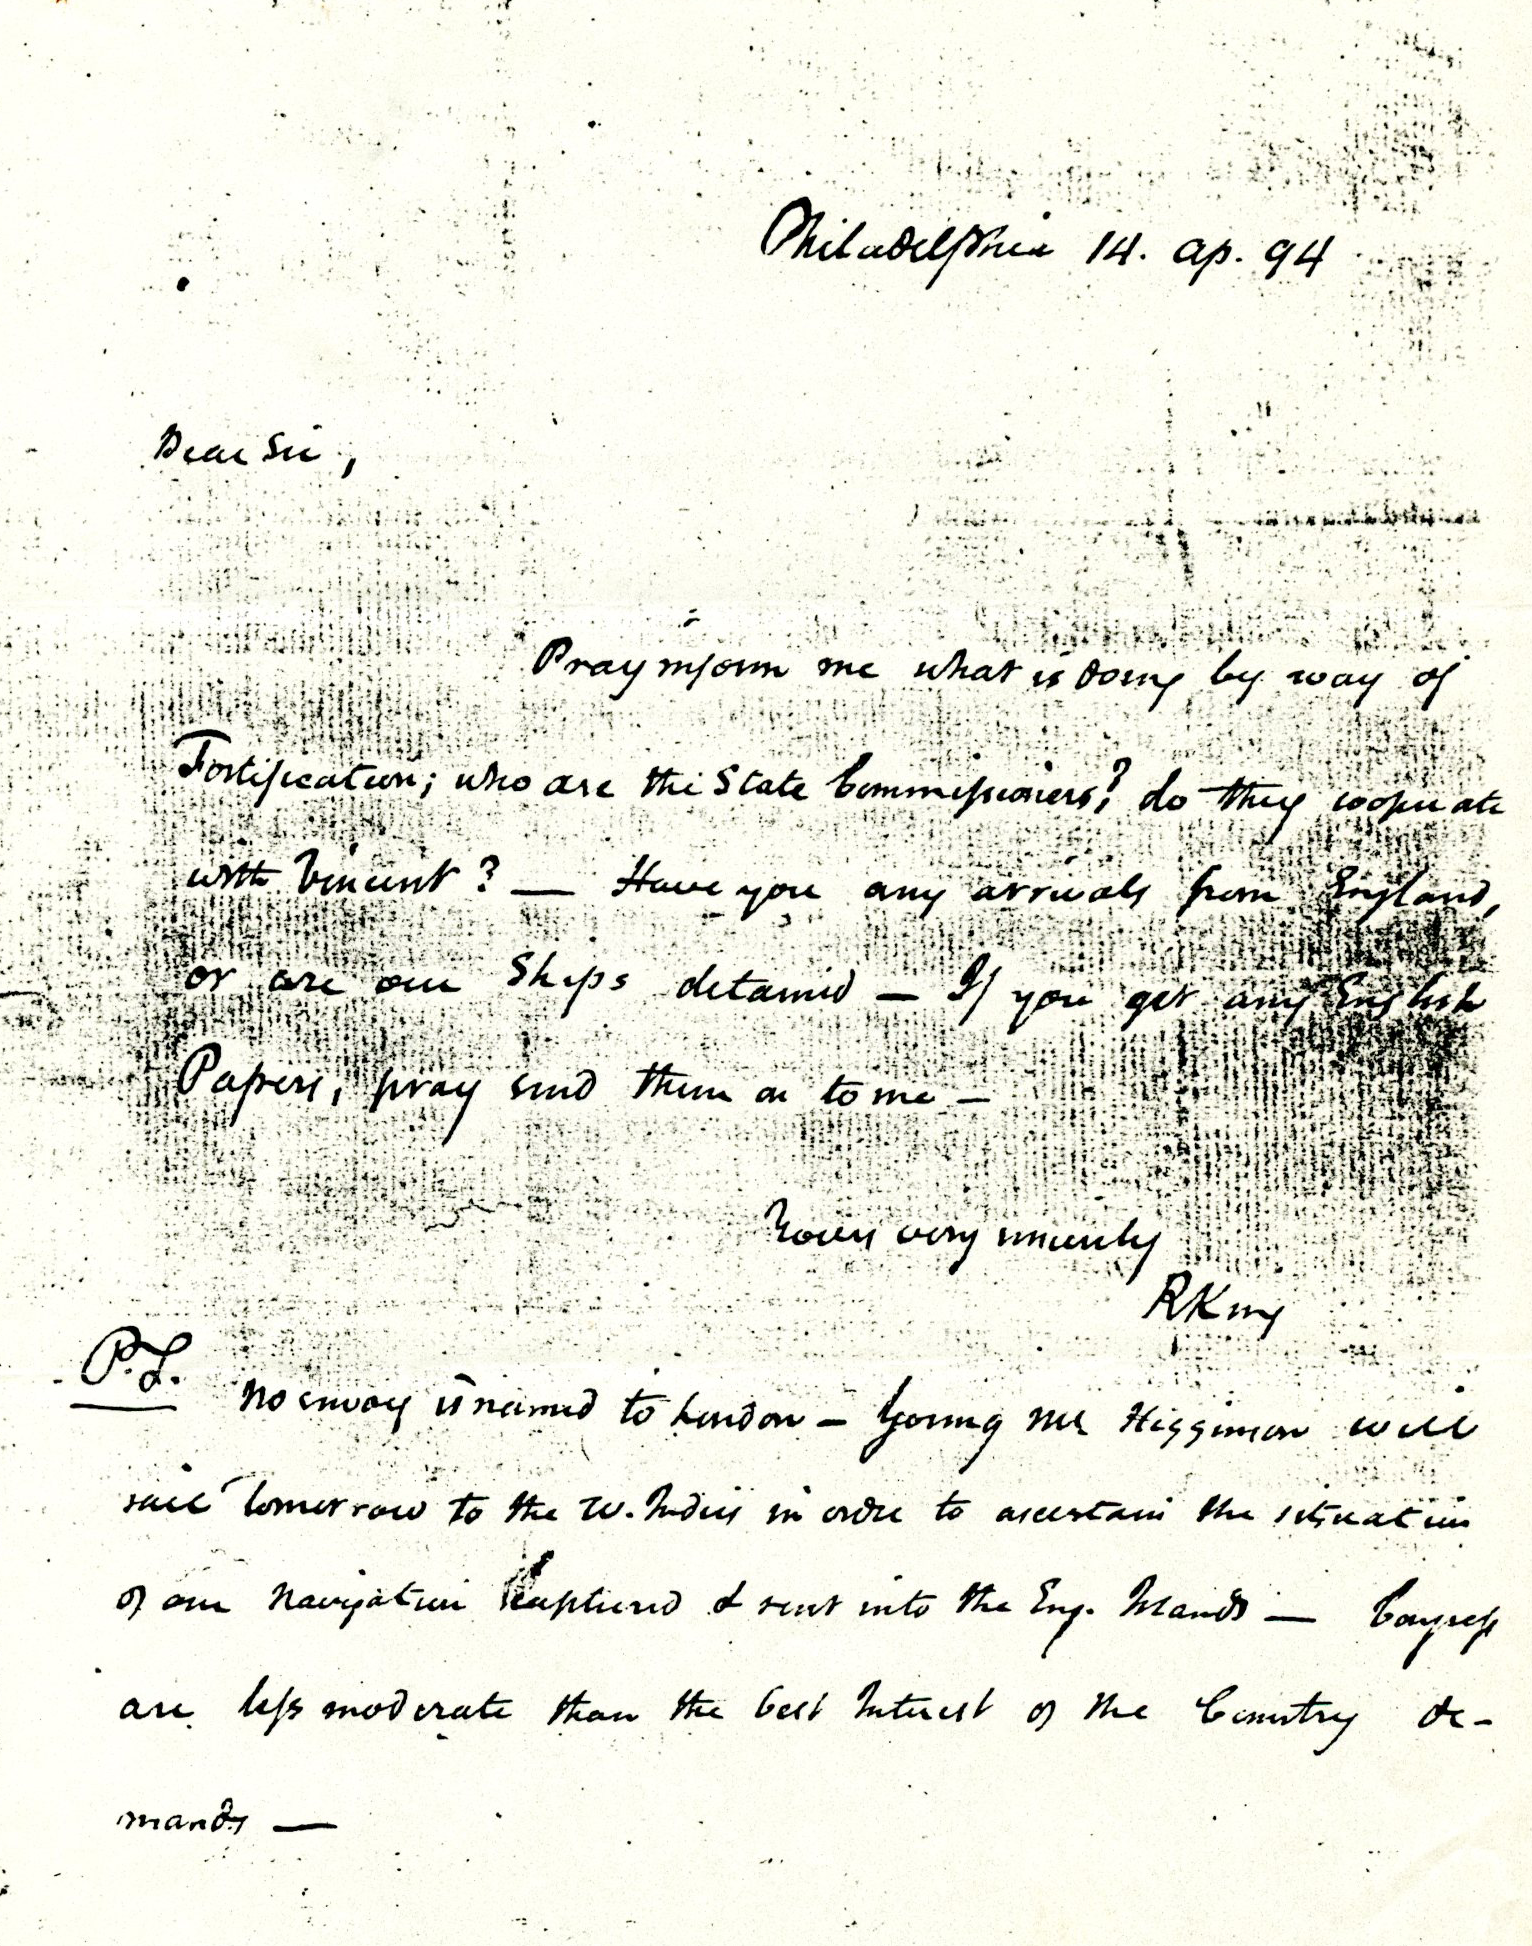 Philadelphia 14. ap. 94
Dear Sir,
Pray inform me what is doing by way of
Fortification; who are the State Commissioners? do they cooperate
with Vincent? — Have you any arrivals from England,
or are our Ships detained — If you get any English
Papers, pray send them on to me —
Yours very sincerely
RKing
P.S. no envoy is named to London — Young Mr Higginson will
sail tomorrow to the W. Indies in order to ascertain the situation
of our Navigation captured & sent into the Eng. Islands — Congress
are less moderate than the best Interest of the Country de-
mands —